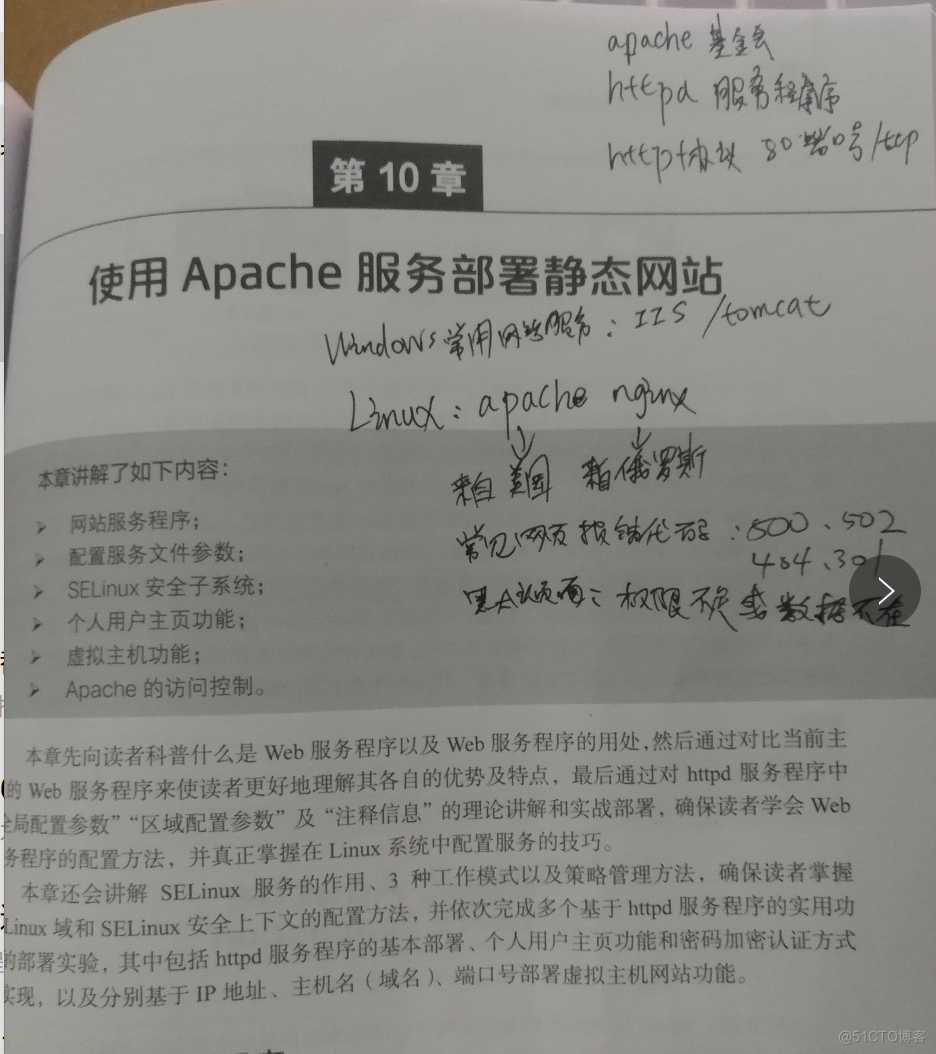 apache 基金会
httpd 服务程序
http协议 80端口号/tcp
第 10 章
使用 Apache 服务部署静态网站
Windows常用网站服务：IIS /tomcat
Linux：apache nginx
来自美国 来自俄罗斯
本章讲解了如下内容：
常见网页报错代码：500、502
404、301
默认页面：权限不足或数据不在
➢ 网站服务程序；
➢ 配置服务文件参数；
➢ SELinux 安全子系统；
➢ 个人用户主页功能；
➢ 虚拟主机功能；
➢ Apache 的访问控制。
本章先向读者科普什么是 Web 服务程序以及 Web 服务程序的用处，然后通过对比当前主
的 Web 服务程序来使读者更好地理解其各自的优势及特点，最后通过对 httpd 服务程序中
全局配置参数”“区域配置参数”及“注释信息”的理论讲解和实战部署，确保读者学会 Web
务程序的配置方法，并真正掌握在 Linux 系统中配置服务的技巧。
本章还会讲解 SELinux 服务的作用、3 种工作模式以及策略管理方法，确保读者掌握
Linux 域和 SELinux 安全上下文的配置方法，并依次完成多个基于 httpd 服务程序的实用功
的部署实验，其中包括 httpd 服务程序的基本部署、个人用户主页功能和密码加密认证方式
实现，以及分别基于 IP 地址、主机名（域名）、端口号部署虚拟主机网站功能。
@51CTO博客